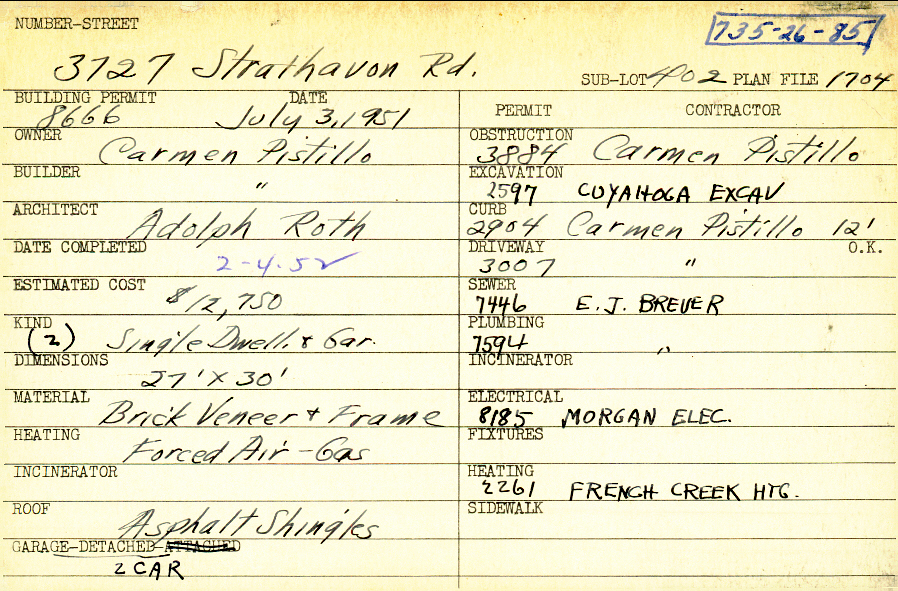 NUMBER-STREET
735-26-85
3727 Strathavon Rd.
SUB-LOT 402 PLAN FILE 1704
BUILDING PERMIT DATE
8666 July 3, 1951
OWNER
Carmen Pistillo
BUILDER
"
ARCHITECT
Adolph Roth
DATE COMPLETED
2-4-52 ✓
ESTIMATED COST
$12,750
KIND
(2) Single Dwell. & Gar.
DIMENSIONS
27' X 30'
MATERIAL
Brick Veneer & Frame
HEATING
Forced Air - Gas
INCINERATOR
ROOF
Asphalt Shingles
GARAGE-DETACHED-ATTACHED
2 CAR
PERMIT CONTRACTOR
OBSTRUCTION
3884 Carmen Pistillo
EXCAVATION
2597 CUYAHOGA EXCAV
CURB
2904 Carmen Pistillo 12'
DRIVEWAY O.K.
3007 "
SEWER
7446 E.J. BREUER
PLUMBING
7594 "
INCINERATOR
ELECTRICAL
8185 MORGAN ELEC.
FIXTURES
HEATING
2261 FRENCH CREEK HTG.
SIDEWALK